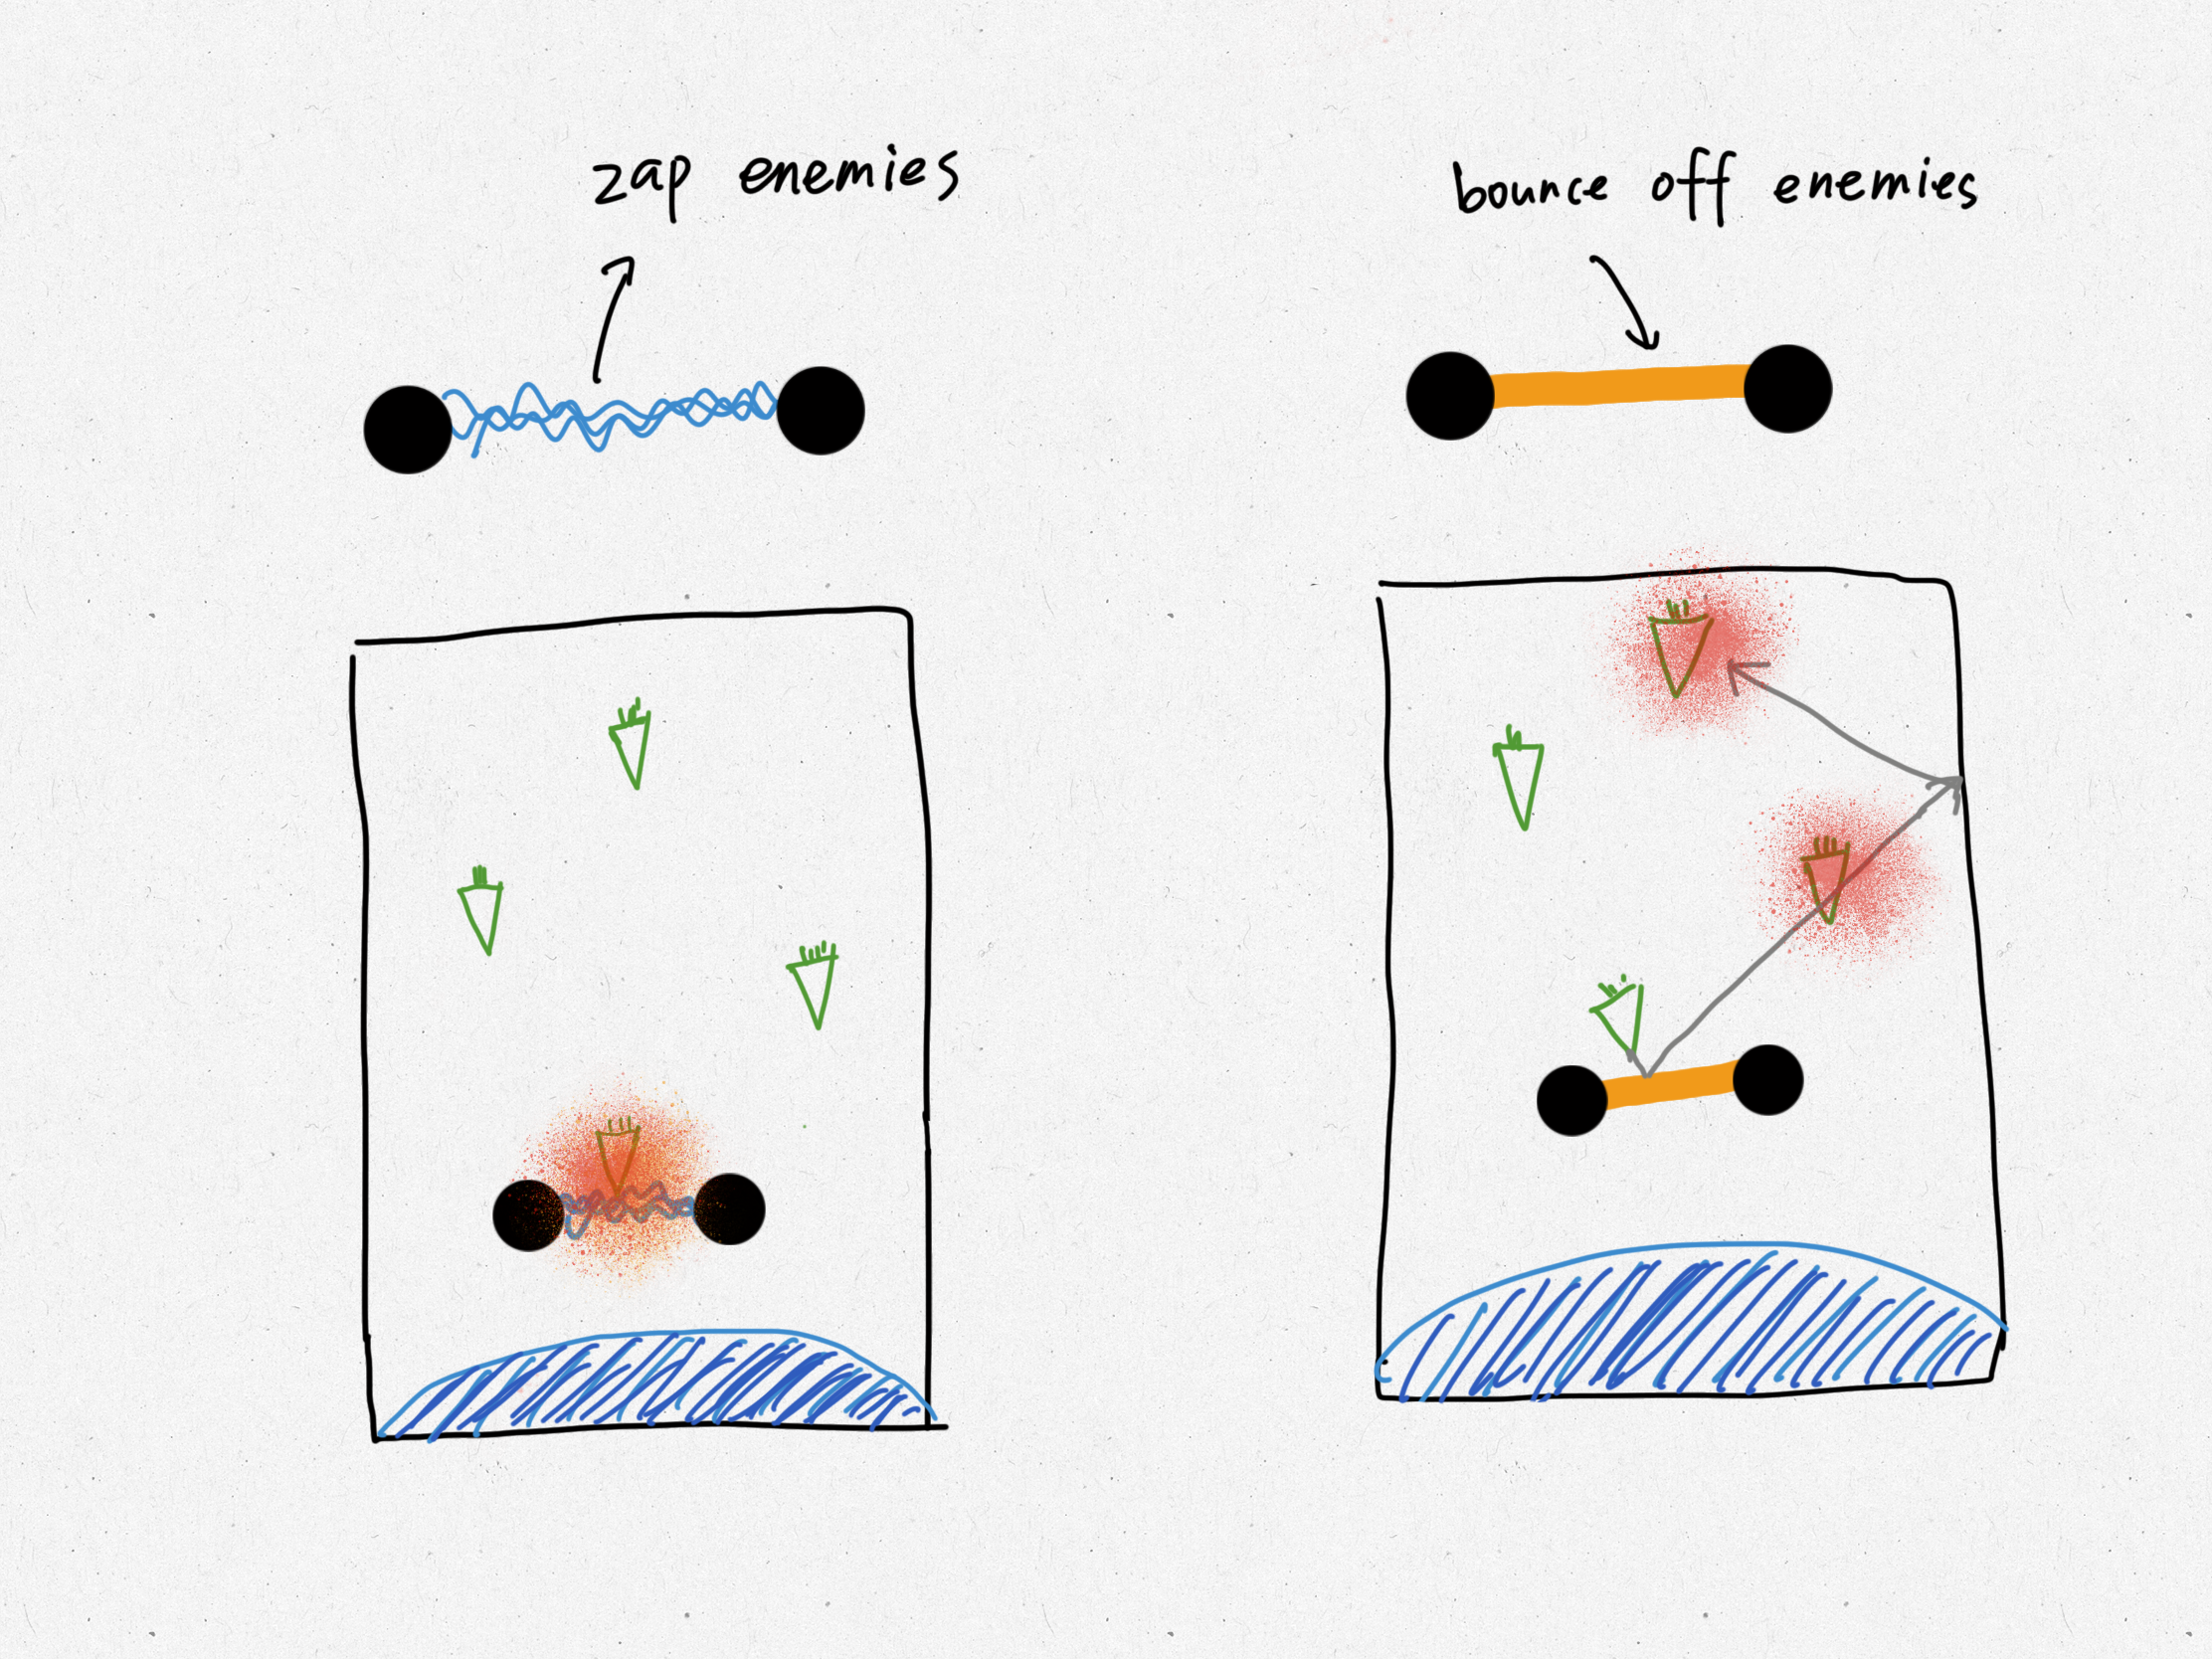 zap enemies
bounce off enemies